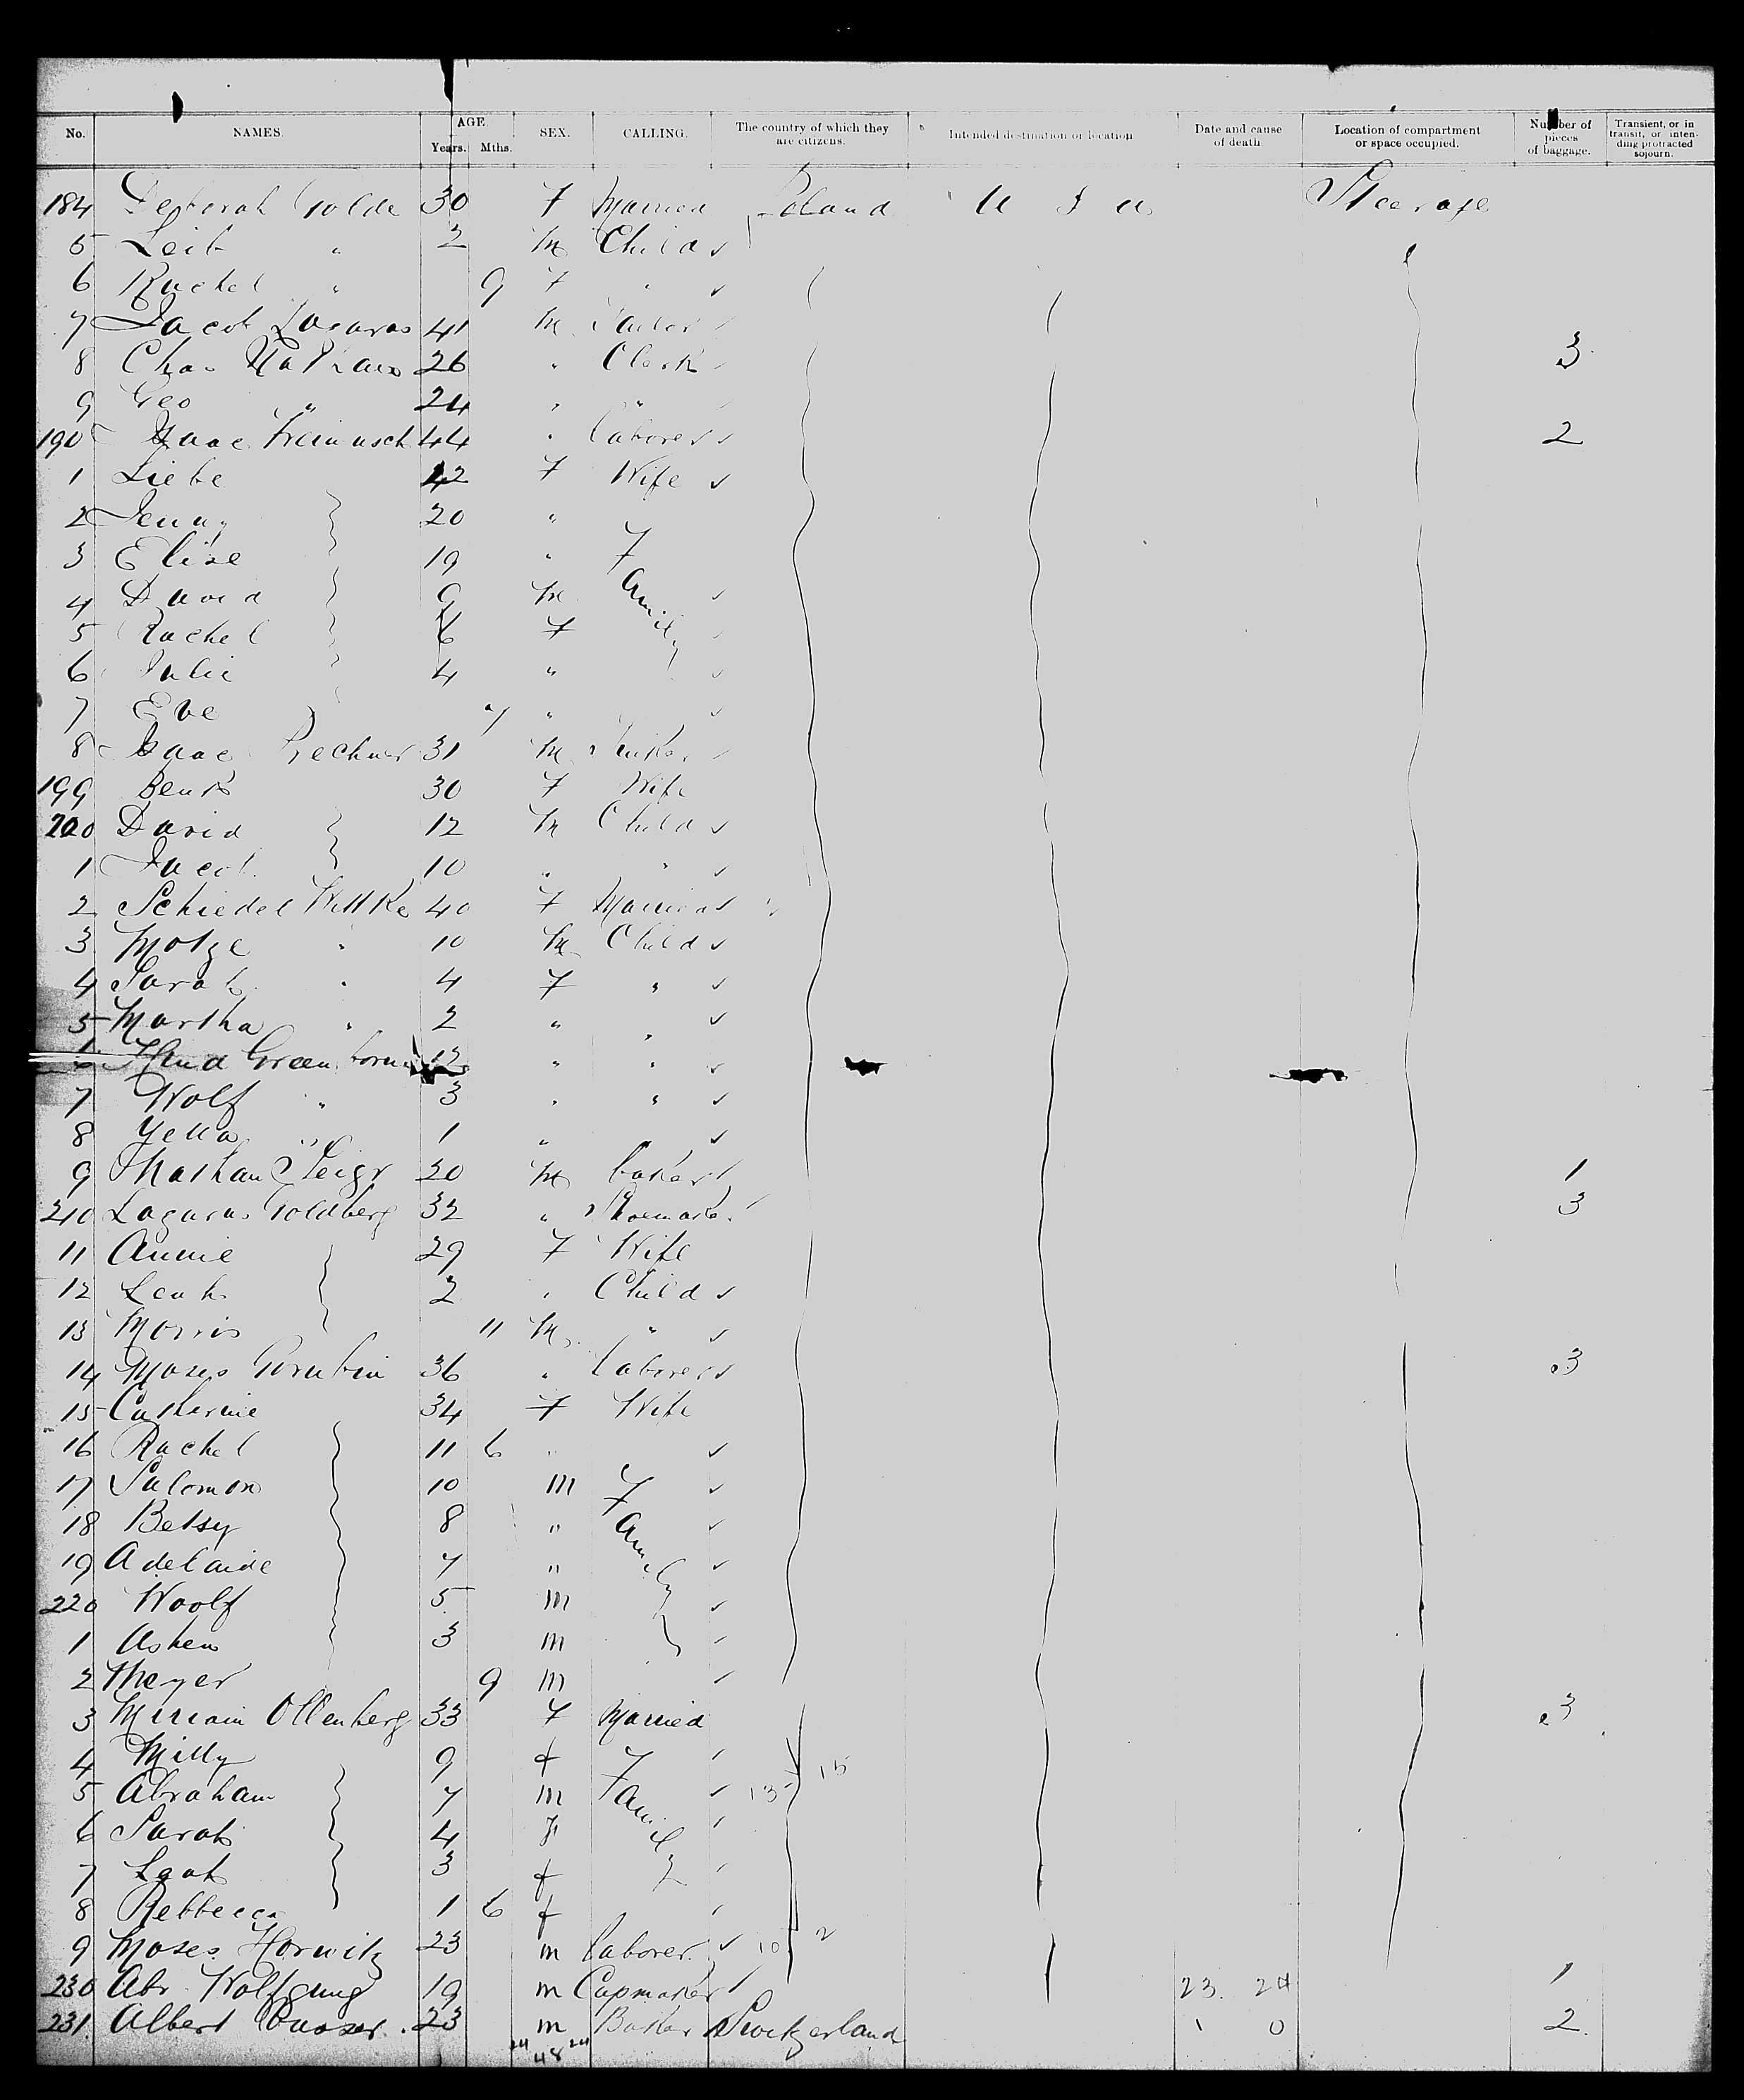 No. NAMES. AGE. Years. Mths. SEX. CALLING. The country of which they are citizens. Intended destination or location Date and cause of death Location of compartment or space occupied. Number of pieces of baggage. Transient, or in transit, or intending protracted sojourn.
184 Deborah Golde 30 F Married Poland U S a Steerage
5 Leib " 2 M Child
6 Rachel " 9 F "
7 Jacob Lasarus 41 M Tailor
8 Chas Nathan 26 " Clerk 3
9 Geo " 24 " "
190 Isaac 44 " laborer 2
1 Liebe 42 F Wife
2 Jenny 20 "
3 Elise 19 " Family
4 David 9 M
5 Rachel 6 F
6 Julie 4 "
7 Eve 7 "
8 Isaac 31 M
199 30 F Wife
200 David 12 M Child
1 Jacob 10 " "
2 Schiedel Wittke 40 F Married
3 Motze " 10 M Child
4 Sarah " 4 F "
5 Martha " 2 " "
6 Greenborn 12 " "
7 Wolf " 3 " "
8 Yetta " 1 "
9 Nathan 20 M baker 1
210 Lazarus Goldberg 32 " Shoemaker 3
11 Annie 29 F Wife
12 Leah 2 " Child
13 Morris 11 M "
14 Moses 36 " laborer 3
15 Catherine 34 F Wife
16 Rachel 11 6 "
17 Salomon 10 m Family
18 Betsy 8 "
19 Adelaide 7 "
220 Woolf 5 m
1 3 m
2 Meyer 9 m
3 Miriam Ollenberg 33 F Married 3
4 Milly 9 f Family
5 Abraham 7 m 13 15
6 Sarah 4 f
7 Leah 3 f
8 Rebbecca 1 6 f
9 Moses Horwitz 23 m laborer 10 2
230 Abr Wolfgung 19 m Capmaker 23. 24 1
231. Albert 23 m Baker Switzerland 1 0 2.
24 48 24